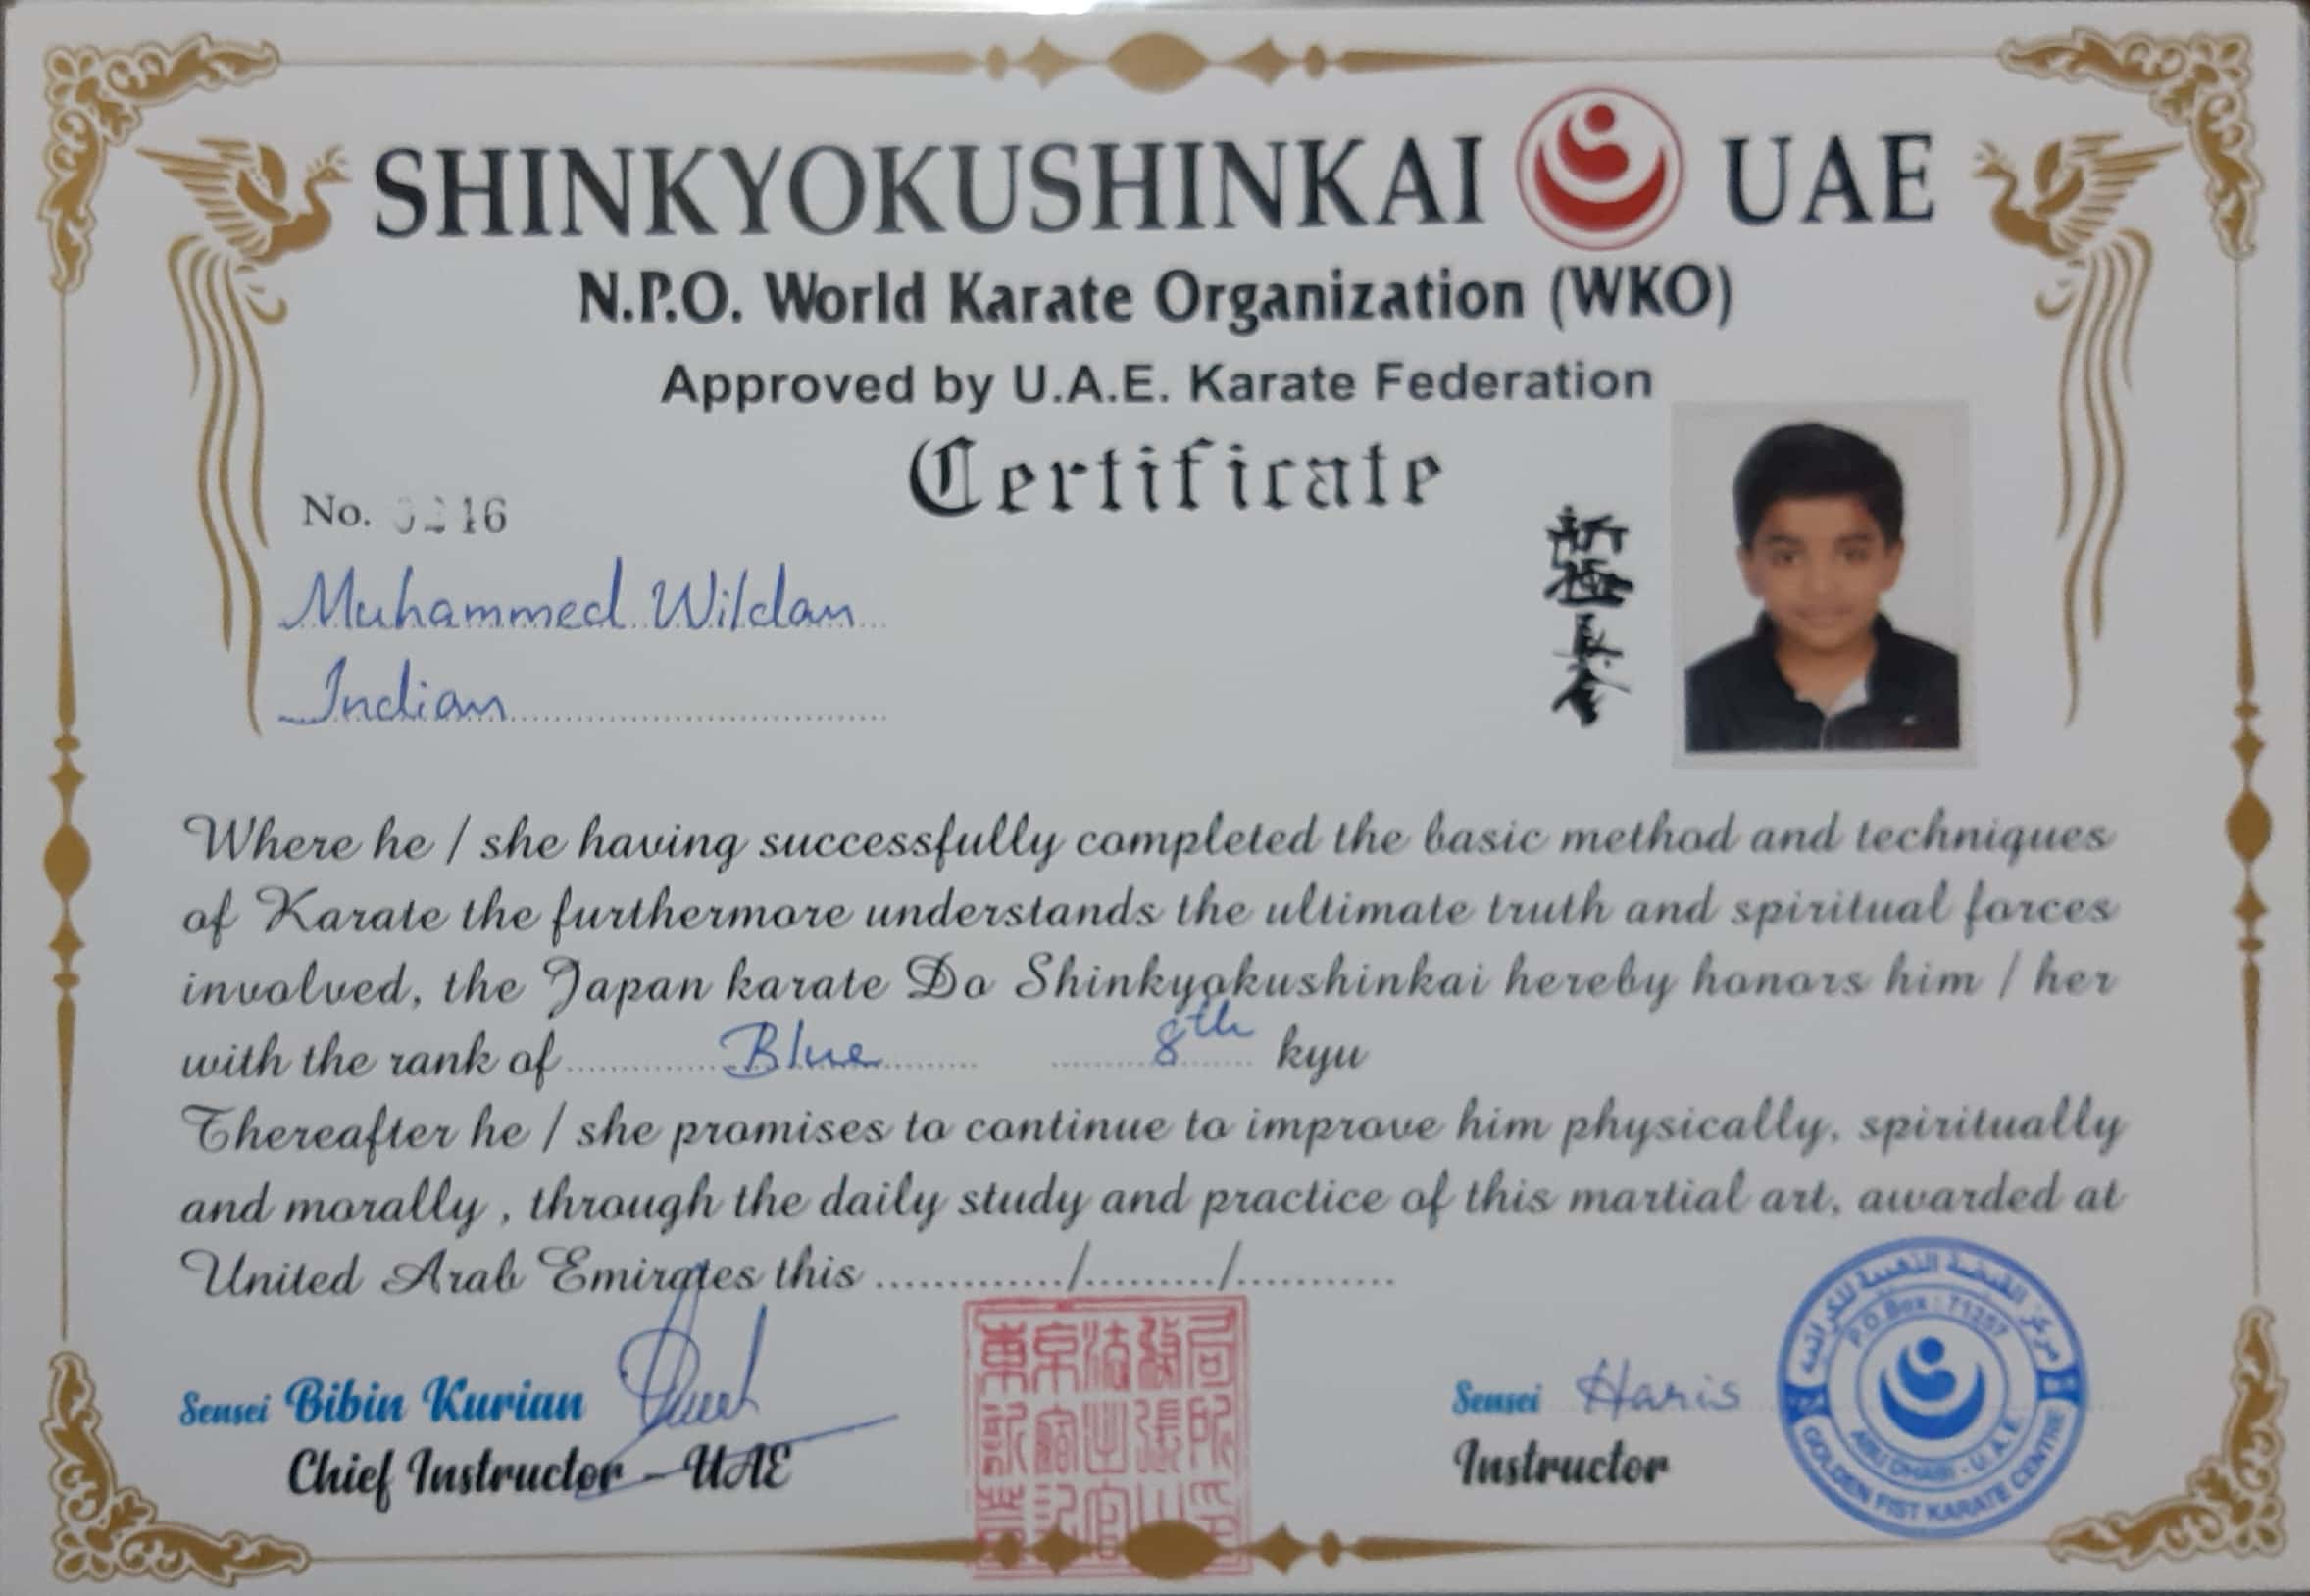 SHINKYOKUSHINKAI UAE
N.P.O. World Karate Organization (WKO)
Approved by U.A.E. Karate Federation
Certificate
No. 0216
新極真会
Muhammed Wildan
Indian
Where he / she having successfully completed the basic method and techniques
of Karate the furthermore understands the ultimate truth and spiritual forces
involved, the Japan karate Do Shinkyokushinkai hereby honors him / her
with the rank of Blue 8th kyu
Thereafter he / she promises to continue to improve him physically, spiritually
and morally , through the daily study and practice of this martial art, awarded at
United Arab Emirates this ............./........./...........
Sensei Bibin Kurian
Chief Instructor - UAE
Sensei Haris
Instructor
مركز القبضة الذهبية للكاراتيه
P.O.Box : 71257
ABU DHABI - U.A.E.
GOLDEN FIST KARATE CENTRE